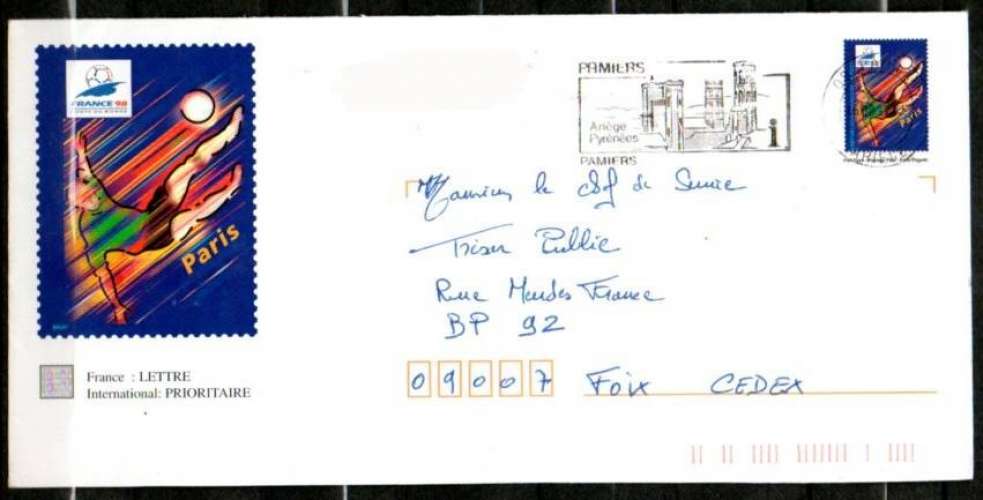 FRANCE 98
COUPE DU MONDE
Paris
PAMIERS
Ariège
Pyrénées
i
PAMIERS
Paris
Monsieur le chef de Service
Trésor Public
Rue Mendes France
BP 92
09007 Foix CEDEX
France : LETTRE
International: PRIORITAIRE